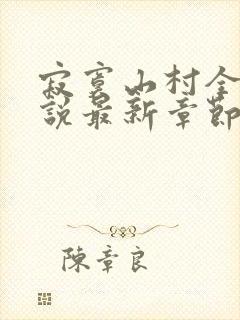 寂寞山村全
說最新章節
陳章良